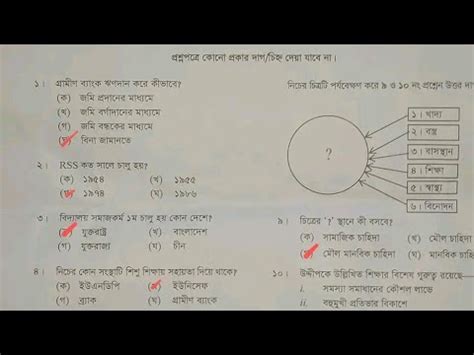 প্রশ্নপত্রে কোনো প্রকার দাগ/চিহ্ন দেয়া যাবে না।
১। গ্রামীণ ব্যাংক ঋণদান করে কীভাবে?
(ক) জমি প্রদানের মাধ্যমে
(খ) জমি বর্গাদানের মাধ্যমে
(গ) জমি বন্ধকের মাধ্যমে
(ঘ) বিনা জামানতে
২। RSS কত সালে চালু হয়?
(ক) ১৯৫৪ (খ) ১৯৫৫
(গ) ১৯৭৪ (ঘ) ১৯৮৬
৩। বিদ্যালয় সমাজকর্ম ১ম চালু হয় কোন দেশে?
(ক) যুক্তরাষ্ট্র (খ) বাংলাদেশ
(গ) যুক্তরাজ্য (ঘ) চীন
৪। নিচের কোন সংস্থাটি শিশু শিক্ষায় সহায়তা দিয়ে থাকে?
(ক) ইউএনডিপি (খ) ইউনিসেফ
(গ) ব্র্যাক (ঘ) গ্রামীণ ব্যাংক
নিচের চিত্রটি পর্যবেক্ষণ করে ৯ ও ১০ নং প্রশ্নের উত্তর দা
?
১। খাদ্য
২। বস্ত্র
৩। বাসস্থান
৪। শিক্ষা
৫। স্বাস্থ্য
৬। বিনোদন
৯। চিত্রের '?' স্থানে কী বসবে?
(ক) সামাজিক চাহিদা (খ) মৌল চাহিদা
(গ) মৌল মানবিক চাহিদা (ঘ) মানবিক চাহিদা
১০। উদ্দীপকে উল্লিখিত শিক্ষার বিশেষ গুরুত্ব রয়েছে—
i. সমস্যা সমাধানের কৌশল লাভে
ii. বহুমুখী প্রতিভার বিকাশে